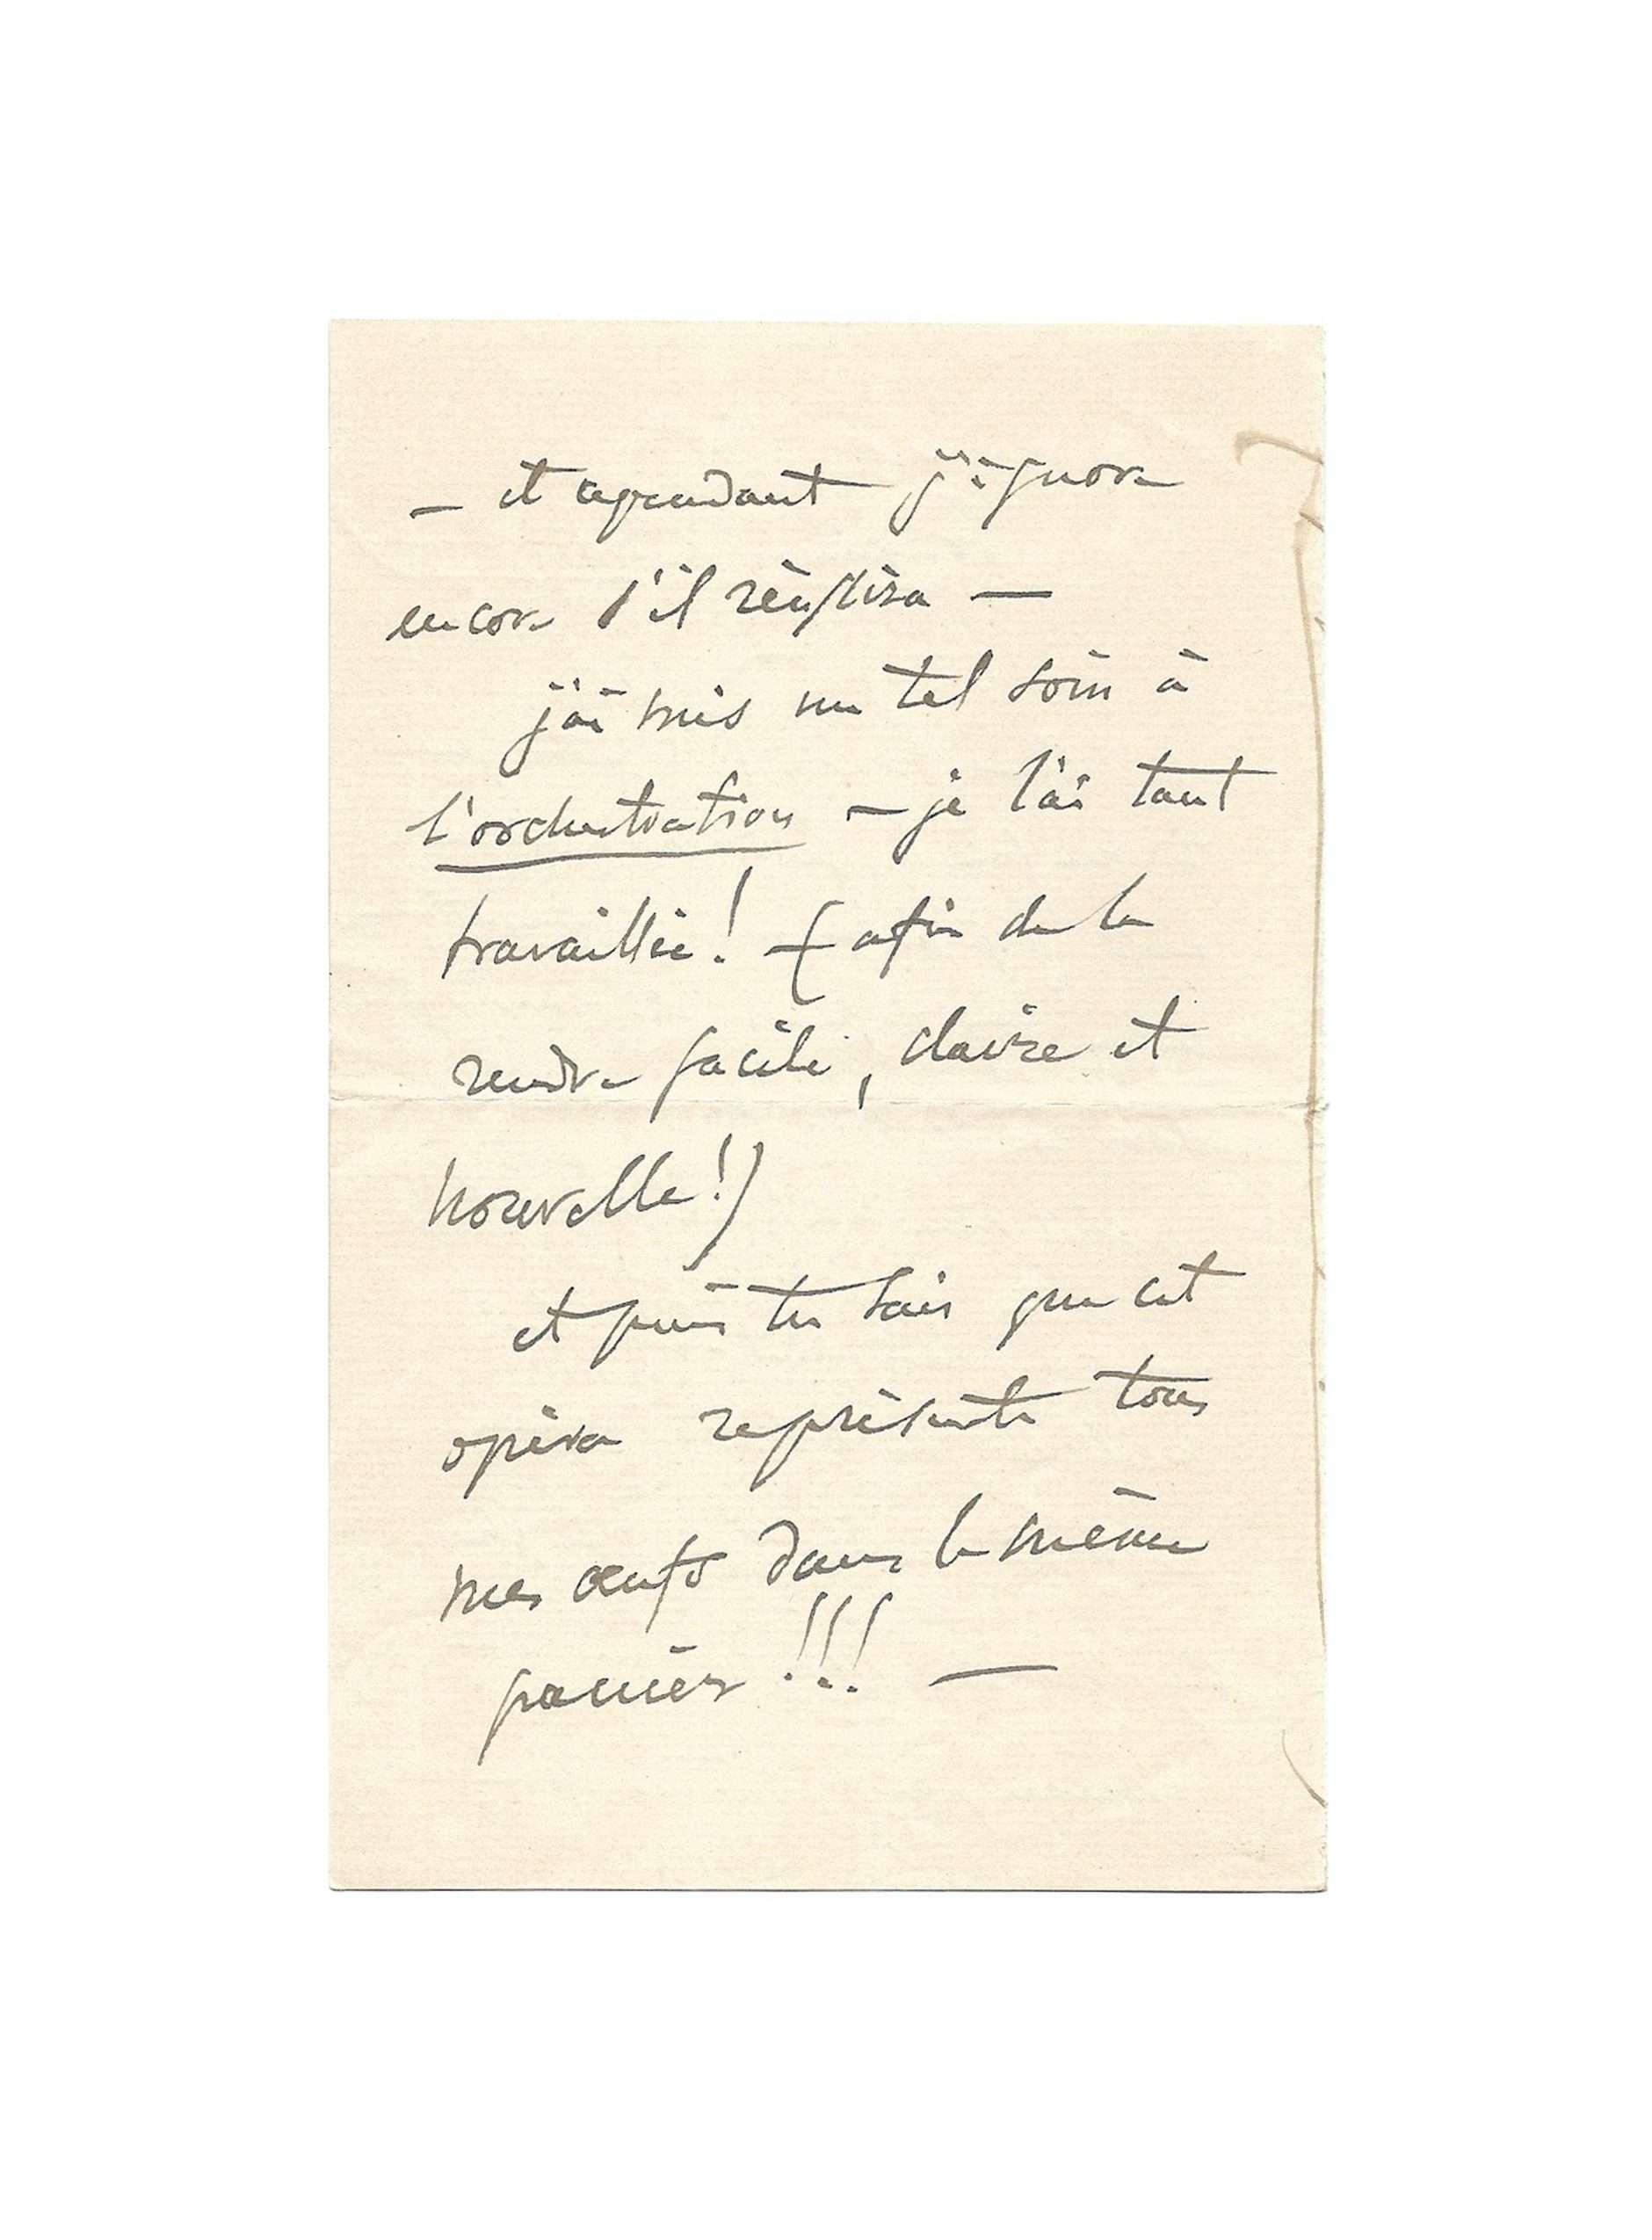 – et cependant j'ignore
encore s'il réussira —
j'ai mis un tel soin à
l'orchestration – je l'ai tant
travaillée! – (afin de la
rendre facile, claire et
nouvelle!)
et puis tu sais que cet
opéra représente tous
mes œufs dans le même
panier!!! —